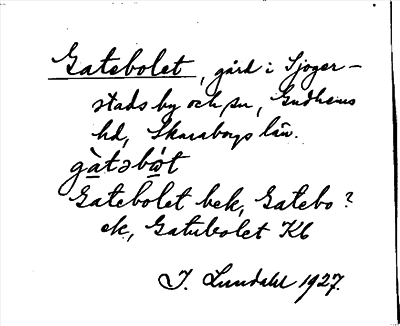 Gatebolet, gård i Sjoger-
stads by och sn, Gudhems
hd, Skaraborgs län.
gàtəbώt
Gatebolet bek, Gatebo?
ek, Gatubolet Kb
I. Lundahl 1927.